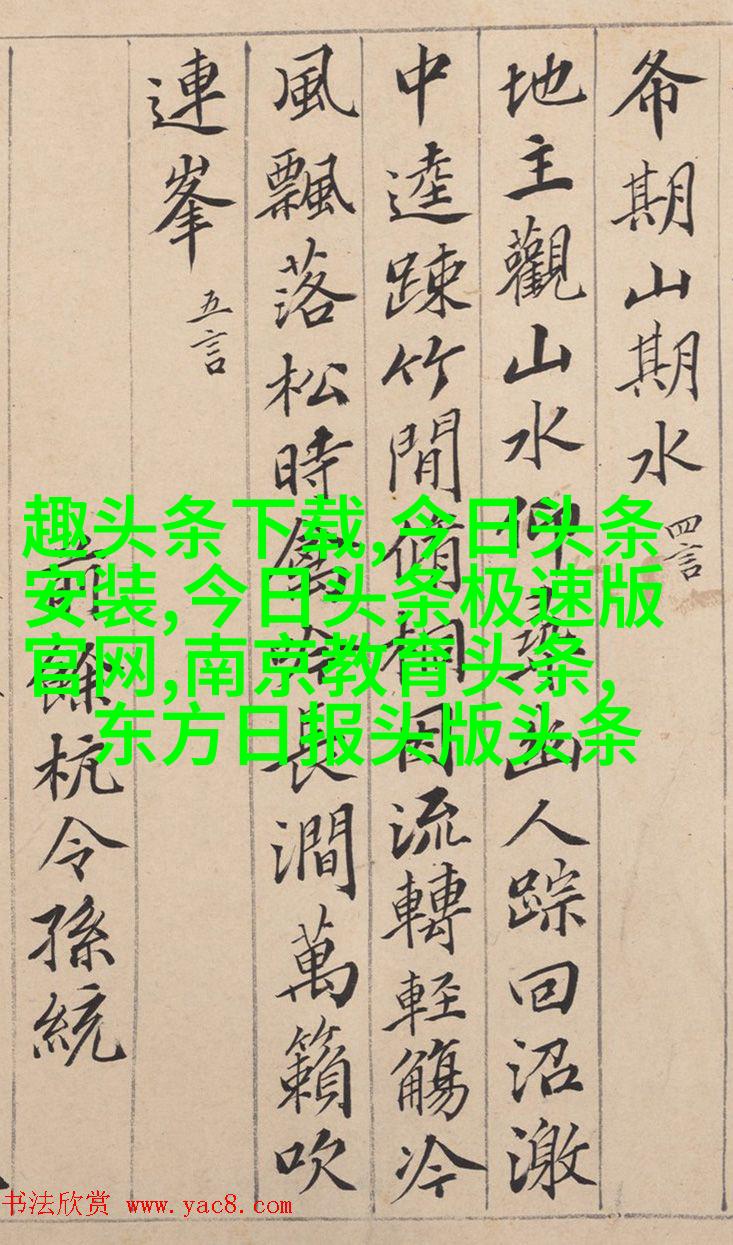 希期山期水 四言
地主觀山水仰尋幽人踪回沼激
中逵踈竹間脩桐因流轉輕觴冷
風飄落松時禽吟長澗萬籟吹
連峯 五言
前餘杭令孫統
趣头条下载,今日头条
安装,今日头条极速版
官网,南京教育头条,
东方日报头版头条
书法欣赏 www.yac8.com